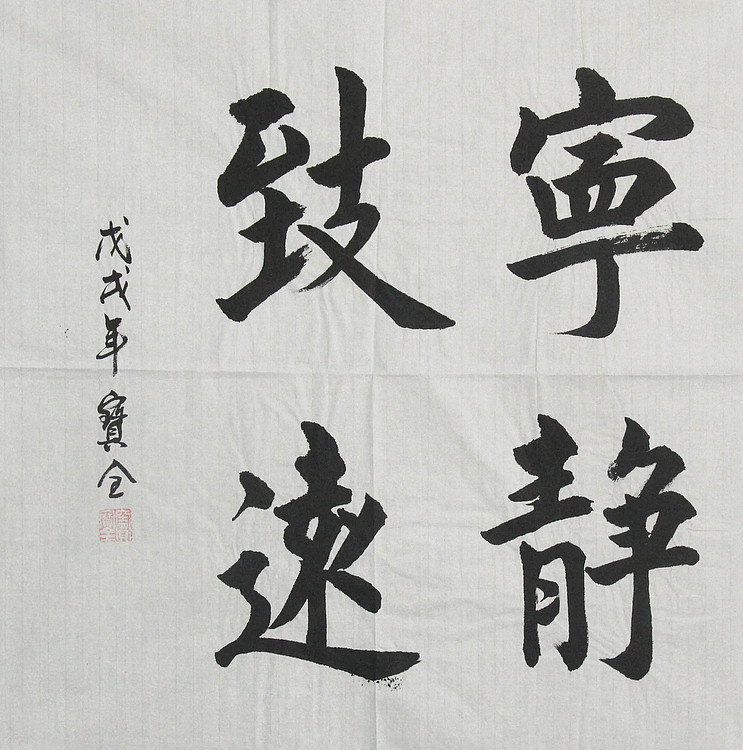 寧静
致遠
戊戌年寶全